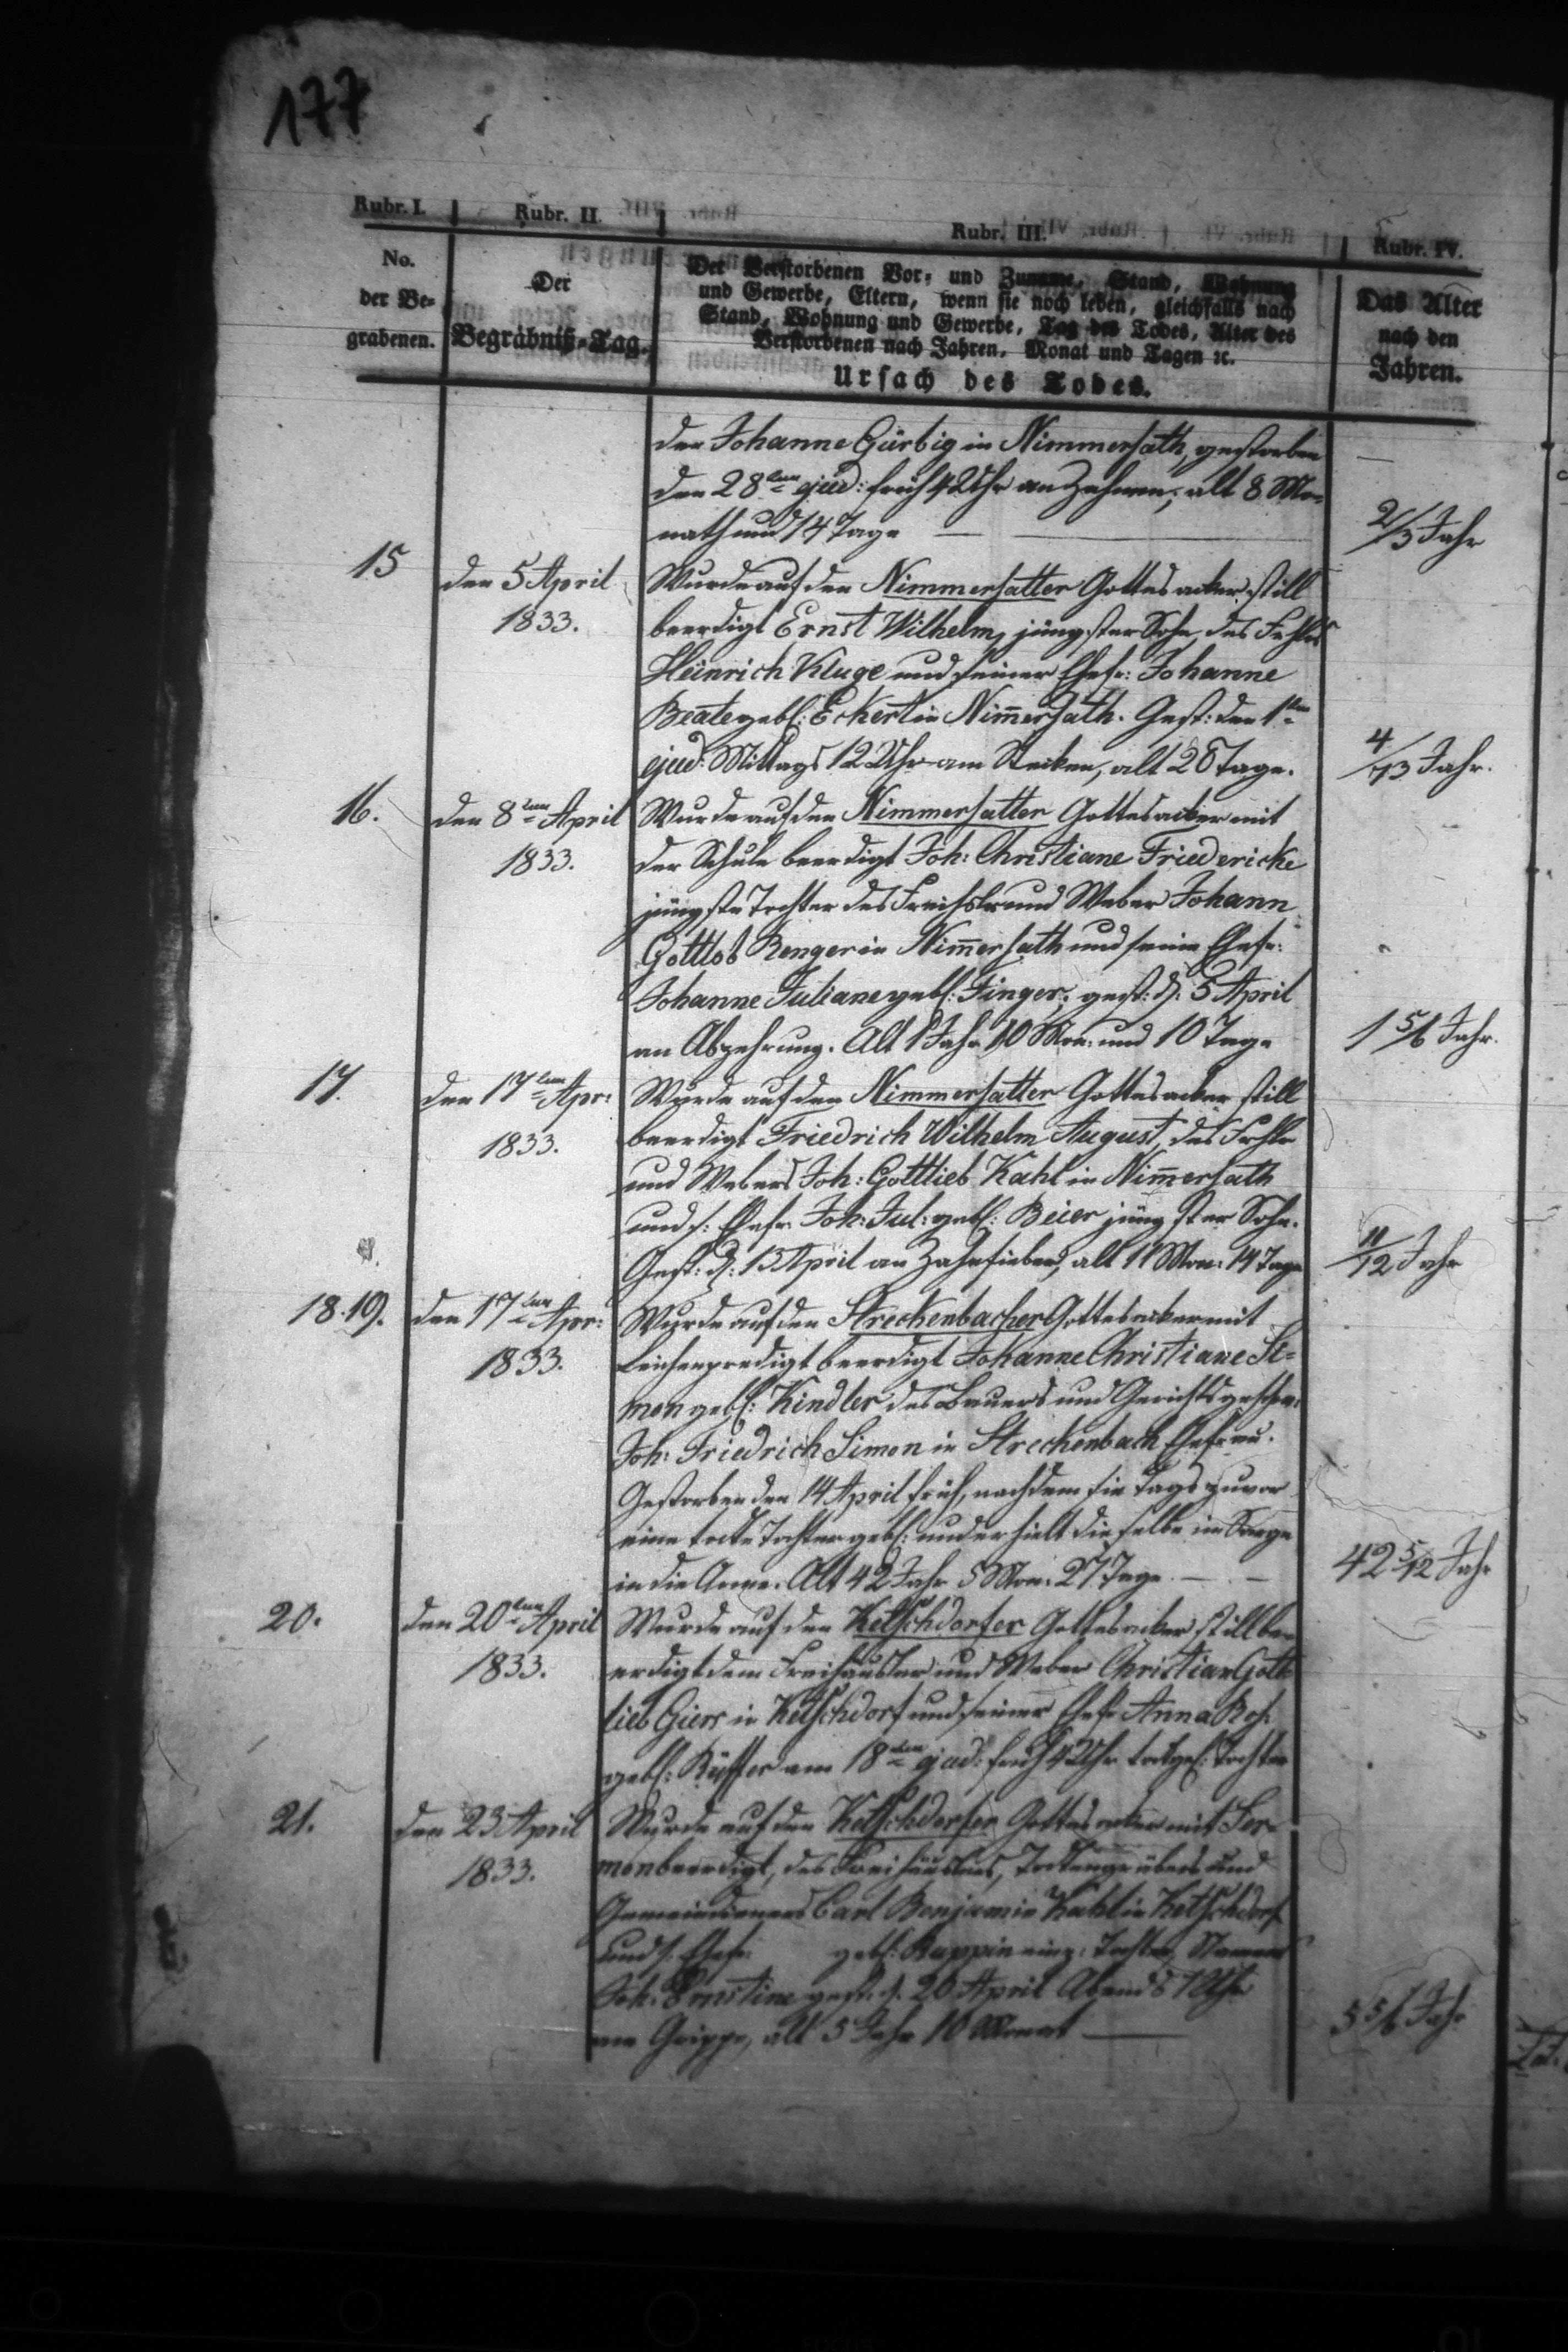 177
Rubr. I. Rubr. II. Rubr. III. Rubr. IV.
No.
der Be-
grabenen.
Der
Begräbniß-Tag.
Der Verstorbenen Vor- und Zuname, Stand, Wohnung
und Gewerbe, Eltern, wenn sie noch leben, gleichfalls nach
Stand, Wohnung und Gewerbe, Tag des Todes, Alter des
Verstorbenen nach Jahren, Monat und Tagen ꝛc.
Ursach des Todes.
Das Alter
nach den
Jahren.
der Johanne Gürbig in Nimmersath, gestorben
den 28ten ejud: früh 42 Uhr an Zahnen, alt 8 Mo-
nath und 14 Tage
2/3 Jahr
15
den 5 April
1833.
Wurde auf den Nimmersatter Gottesacker still
beerdigt Ernst Wilhelm, jüngster Sohn des Frhls
Heinrich Kluge und seiner Ehefr: Johanne
Beate geb: Eckert in Nim̄ersath. Gest: den 1ten
ejud: Mittags 12 Uhr am Stecken, alt 28 Tage.
4/13 Jahr.
16.
den 8ten April
1833.
Wurde auf den Nimmersatter Gottesacker mit
der Schule beerdigt Joh: Christiane Friedericke
jüngste Tochter des Freihslr und Weber Johann
Gottlob Renger in Nim̄ersath und seine Ehefr:
Johanne Juliane geb: Finger, gest: d: 5 April
an Abzehrung. Alt 1 Jahr 10 Mon: und 10 Tage
1 5/6 Jahr.
17.
den 17ten Apr:
1833.
Wurde auf den Nimmersatter Gottesacker still
beerdigt Friedrich Wilhelm August, des Frhlr
und Webers Joh: Gottlieb Kahl in Nim̄ersath
und s: Ehefr. Joh: Jul: geb: Beier jüngster Sohn.
Gest: d: 13 April an Zahnfieber, alt 11 Mon: 14 Tage
11/12 Jahr
18. 19.
den 17ten Apr:
1833.
Wurde auf den Streckenbacher Gottesacker mit
Leichenpredigt beerdigt Johanne Christiane Si-
mon geb: Kindler des Bauers und Gerichtsgeschw:
Joh: Friedrich Simon in Streckenbach Ehefrau.
Gestorben den 14 April früh, nachdem sie tags zuvor
eine todte Tochter geb: und erhielt dieselbe im Sarge
in die Arme. Alt 42 Jahr 5 Mon: 27 Tage
42 5/12 Jahr
20.
den 20ten April
1833.
Wurde auf den Ketschdorfer Gottesacker still be-
erdigt dem Freihäusler und Weber Christian Gott-
lieb Giers in Ketschdorf und seiner Ehefr Anna Ros:
geb: am 18ten ejud: früh 4 Uhr todtgeb: Tochter
21.
den 23 April
1833.
Wurde auf den Ketschdorfer Gottesacker mit Ser-
mon beerdigt, des Freihäuslers, Todtengräbers und
Gemeindieners Carl Benjamin Kahl in Ketschdorf
und s: Ehefr: geb: Kuppin einz: Tochter, Namens
Joh: Ernstine gest: d: 20 April Abends 7 Uhr
an Grippe, alt 5 Jahr 10 Monat
5 5/6 Jahr